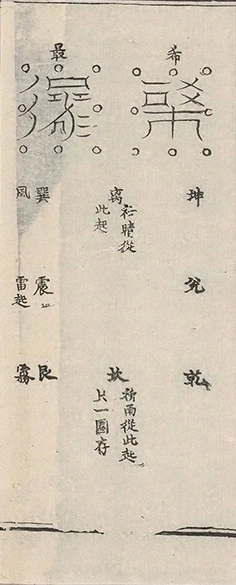 希
最
坤
兌
乾
离
祈晴從
此起
坎
祈雨從此起
上一圈存
巽
風
震
雷起
艮
霧